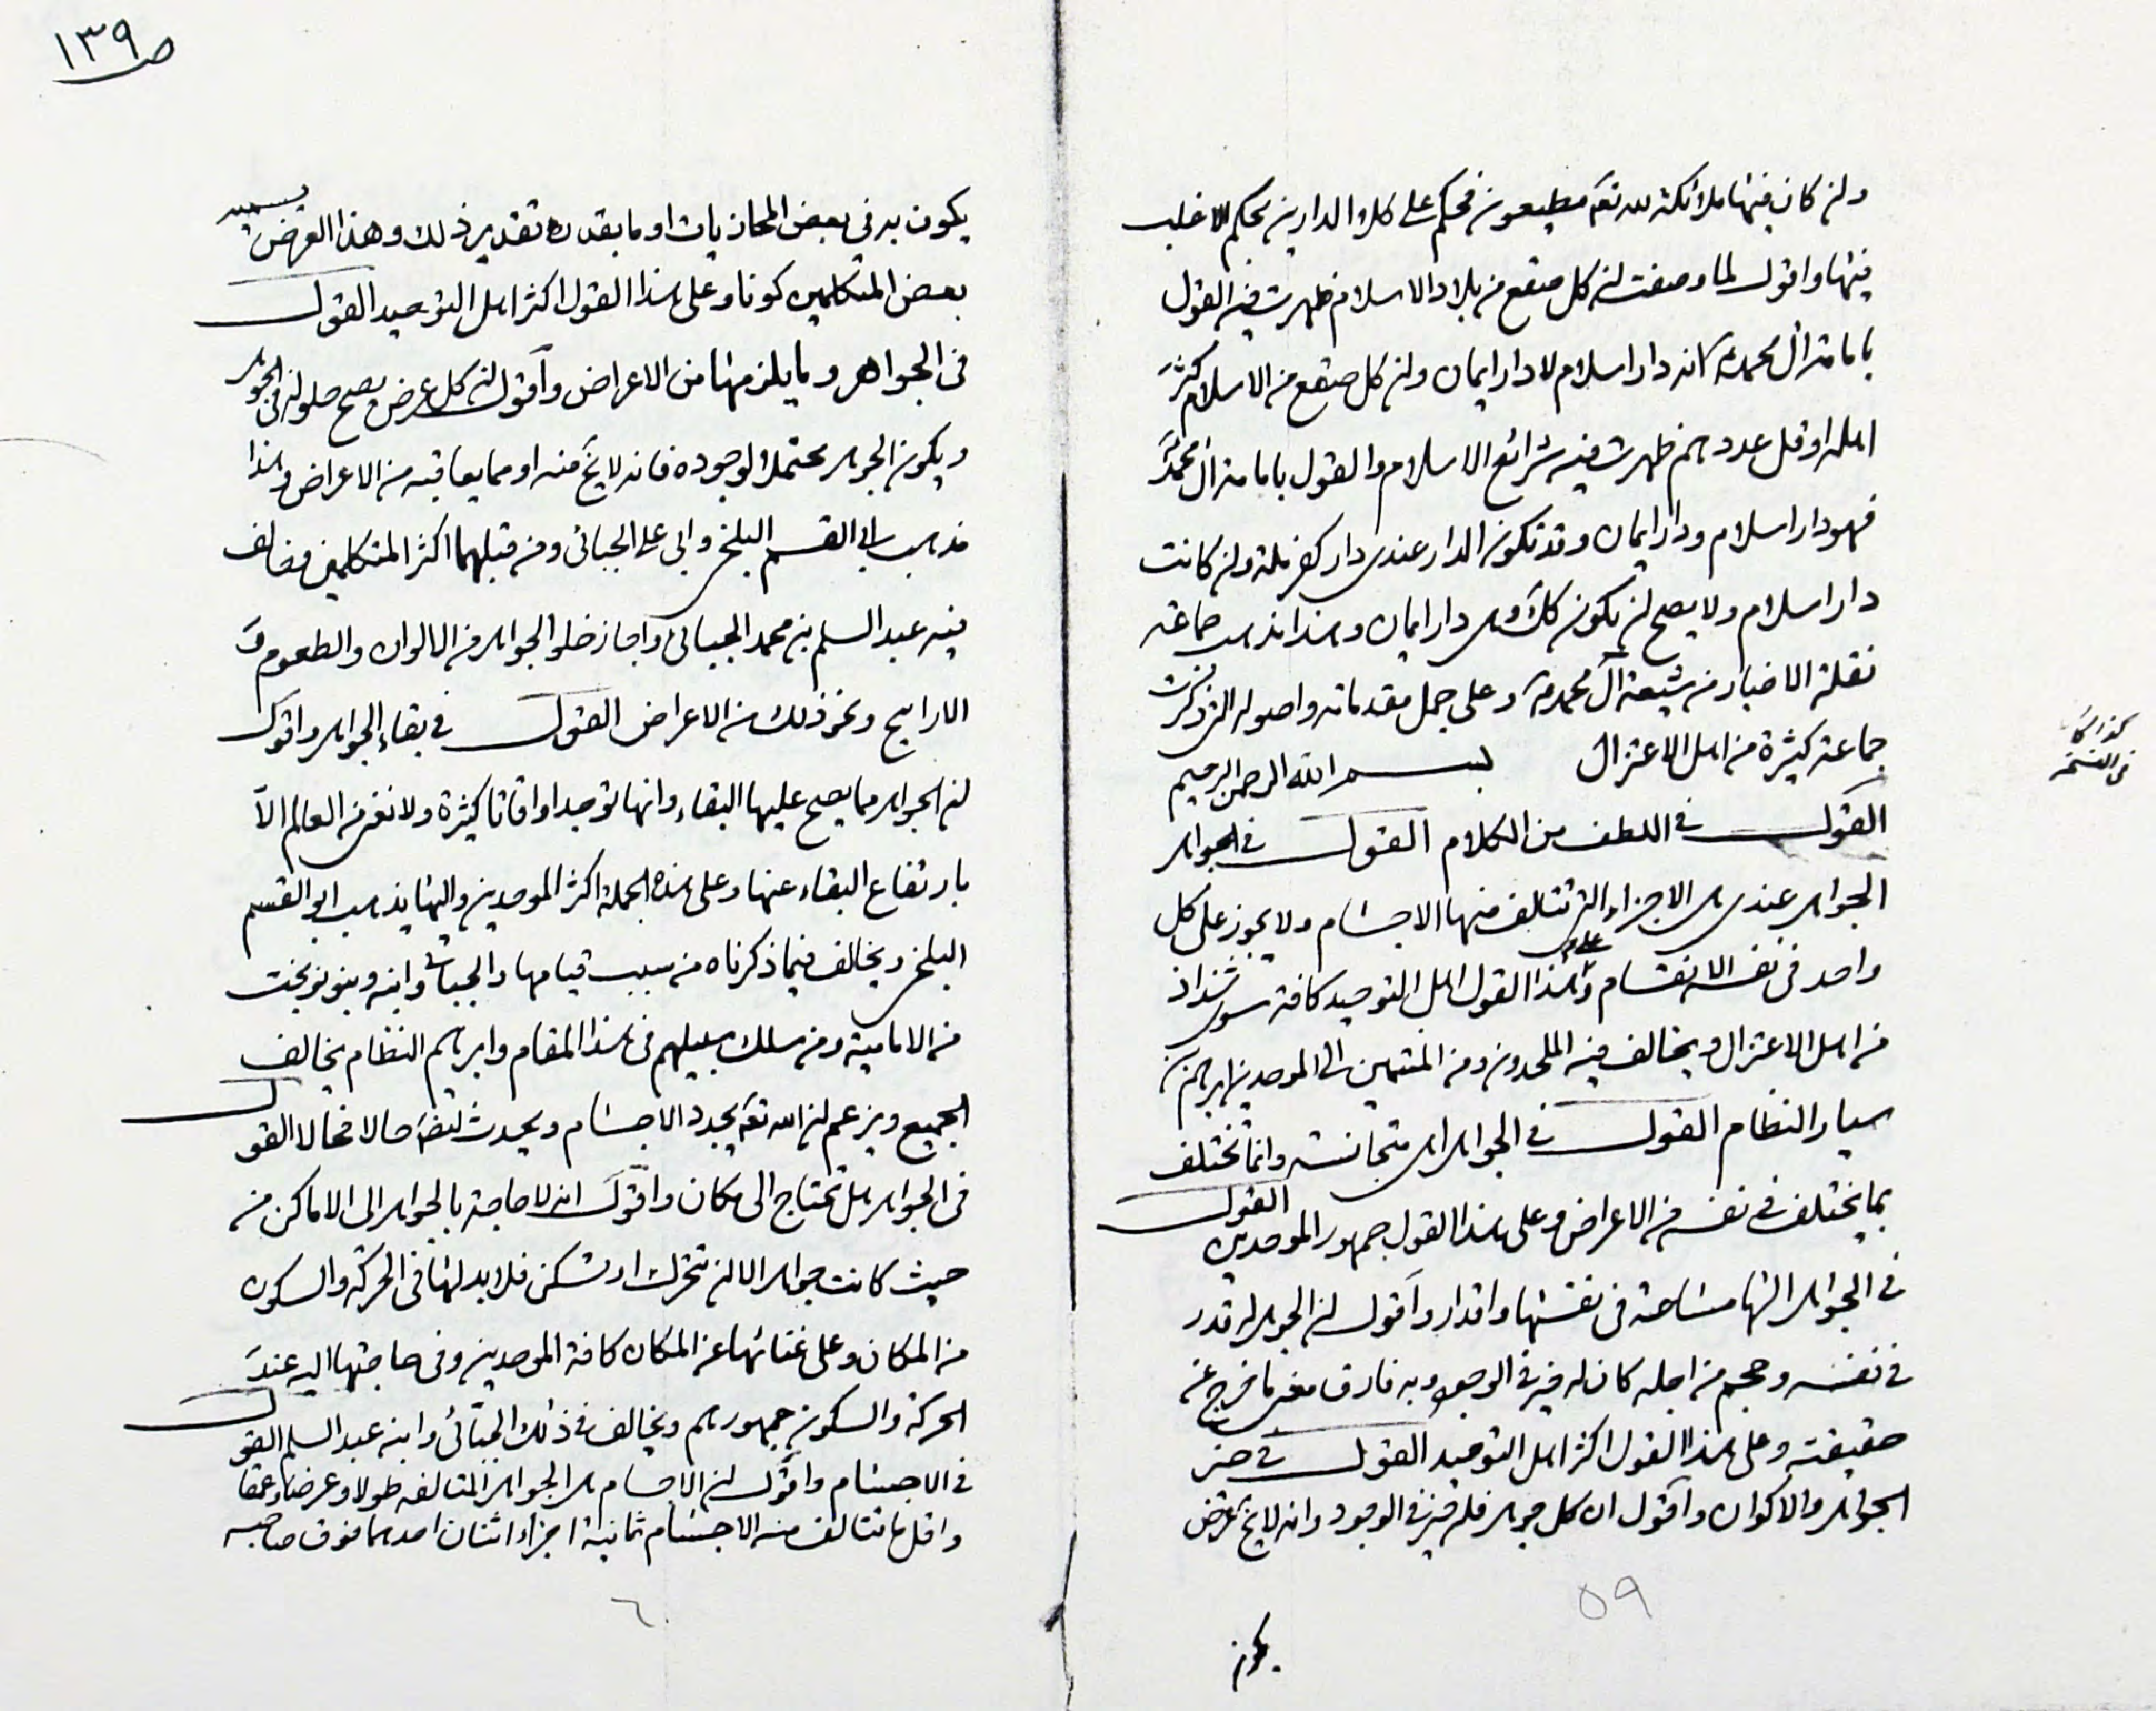 ص ١٣٩
وان كان فيها ملائكة لله تعه مطيعون فحكم على كلا الدارين بحكم الاغلب
فيها واقول لما وصفت ان كل صقع من بلاد الاسلام ظهرت فيه القول
بامامة ال محمد ع كانه دار اسلام لا دار ايمان وان كل صقع من الاسلام كثر
اهله او قل عددهم ظهرت فيه شرائع الاسلام والقول بامامة ال محمد
فهو دار اسلام ودار ايمان وقد تكون الدار عندى دار كفر ملة وان كانت
دار اسلام ولا يصح ان يكون كك وهى دار ايمان وهذا مذهب جماعة
نقلة الاخبار من شيعة آل محمد ص وعلى جمل مقدماته واصوله التى ذكرت
جماعة كثيرة من اهل الاعتزال بسم الله الرحمن الرحيم
كذا كان
فى النسخه
القول فى اللطف من الكلام القول فى الجواهر
الجواهر عندى هى الاجزاء التى تتالف منها الاجسام ولا يجوز على كل
واحد فى نفسه الانقسام وعلى هذا القول اهل التوحيد كافة سوى شذاذ
من اهل الاعتزال ويخالف فيه الملحدون ومن المنتمين الى الموحدين ابرهيم بن
سيار النظام القول فى الجواهر اهى متجانسة وانما تختلف
بما يختلف فى نفسه من الاعراض وعلى هذا القول جمهور الموحدين القول
فى الجواهر الها مساحة فى نفسها واقدار واقول ان الجوهر له قدر
فى نفسه وحجم من اجله كان له حيز فى الوجود وبه فارق معنى ما خرج عن
حقيقته وعلى هذا القول اكثر اهل التوحيد القول فى حيز
الجواهر والاكوان واقول ان كل جوهر فله حيز فى الوجود وانه لا يخ عن عرض
٥٩
يكون
يكون به فى بعض المحاذيات او ما يقدره تقدير ذلك وهذا العرض يسميه
بعض المتكلمين كونا وعلى هذا القول اكثر اهل التوحيد القول
فى الجواهر وما يلزمها من الاعراض واقول ان كل عرض يصح حلوله فى الجوهر
ويكون الجوهر محتملا لوجوده فانه لا يخ منه او مما يعاقبه من الاعراض وهذا
مذهب ابى القسم البلخى وابى على الجبائى ومن قبلهما اكثر المتكلمين وخالف
فيه عبد السلم بن محمد الجبائى واجاز خلو الجواهر من الالوان والطعوم و
الاراييح ونحو ذلك من الاعراض القول فى بقاء الجواهر واقول
ان الجواهر مما يصح عليها البقاء وانها توجد اوقاتا كثيرة ولا تفنى من العالم الا
بارتفاع البقاء عنها وعلى هذه الجملة اكثر الموحدين واليها يذهب ابو القسم
البلخى ويخالف فيما ذكرناه من سبب قيامها والجبائى وابنه وبنو نوبخت
من الامامية ومن سلك سبيلهم فى هذا المقام وابرهيم النظام يخالف
الجميع ويزعم ان الله تعه يجدد الاجسام ويحدثها حالا فحالا القول
فى الجواهر هل تحتاج الى مكان واقول انه لا حاجة بالجواهر الى الاماكن من
حيث كانت جواهر الا ان تتحرك او تسكن فلا بد لها فى الحركة والسكون
من المكان وعلى غنائها عن المكان كافة الموحدين وفى حاجتها اليه عند
الحركة والسكون جمهورهم ويخالف فى ذلك الجبائى وابنه عبد السلم القول
فى الاجسام واقول ان الاجسام هى الجواهر المتالفه طولا وعرضا وعمقا
واقل ما تتالف منه الاجسام ثمانية اجزاء اثنان احدهما فوق صاحبه
٦٠